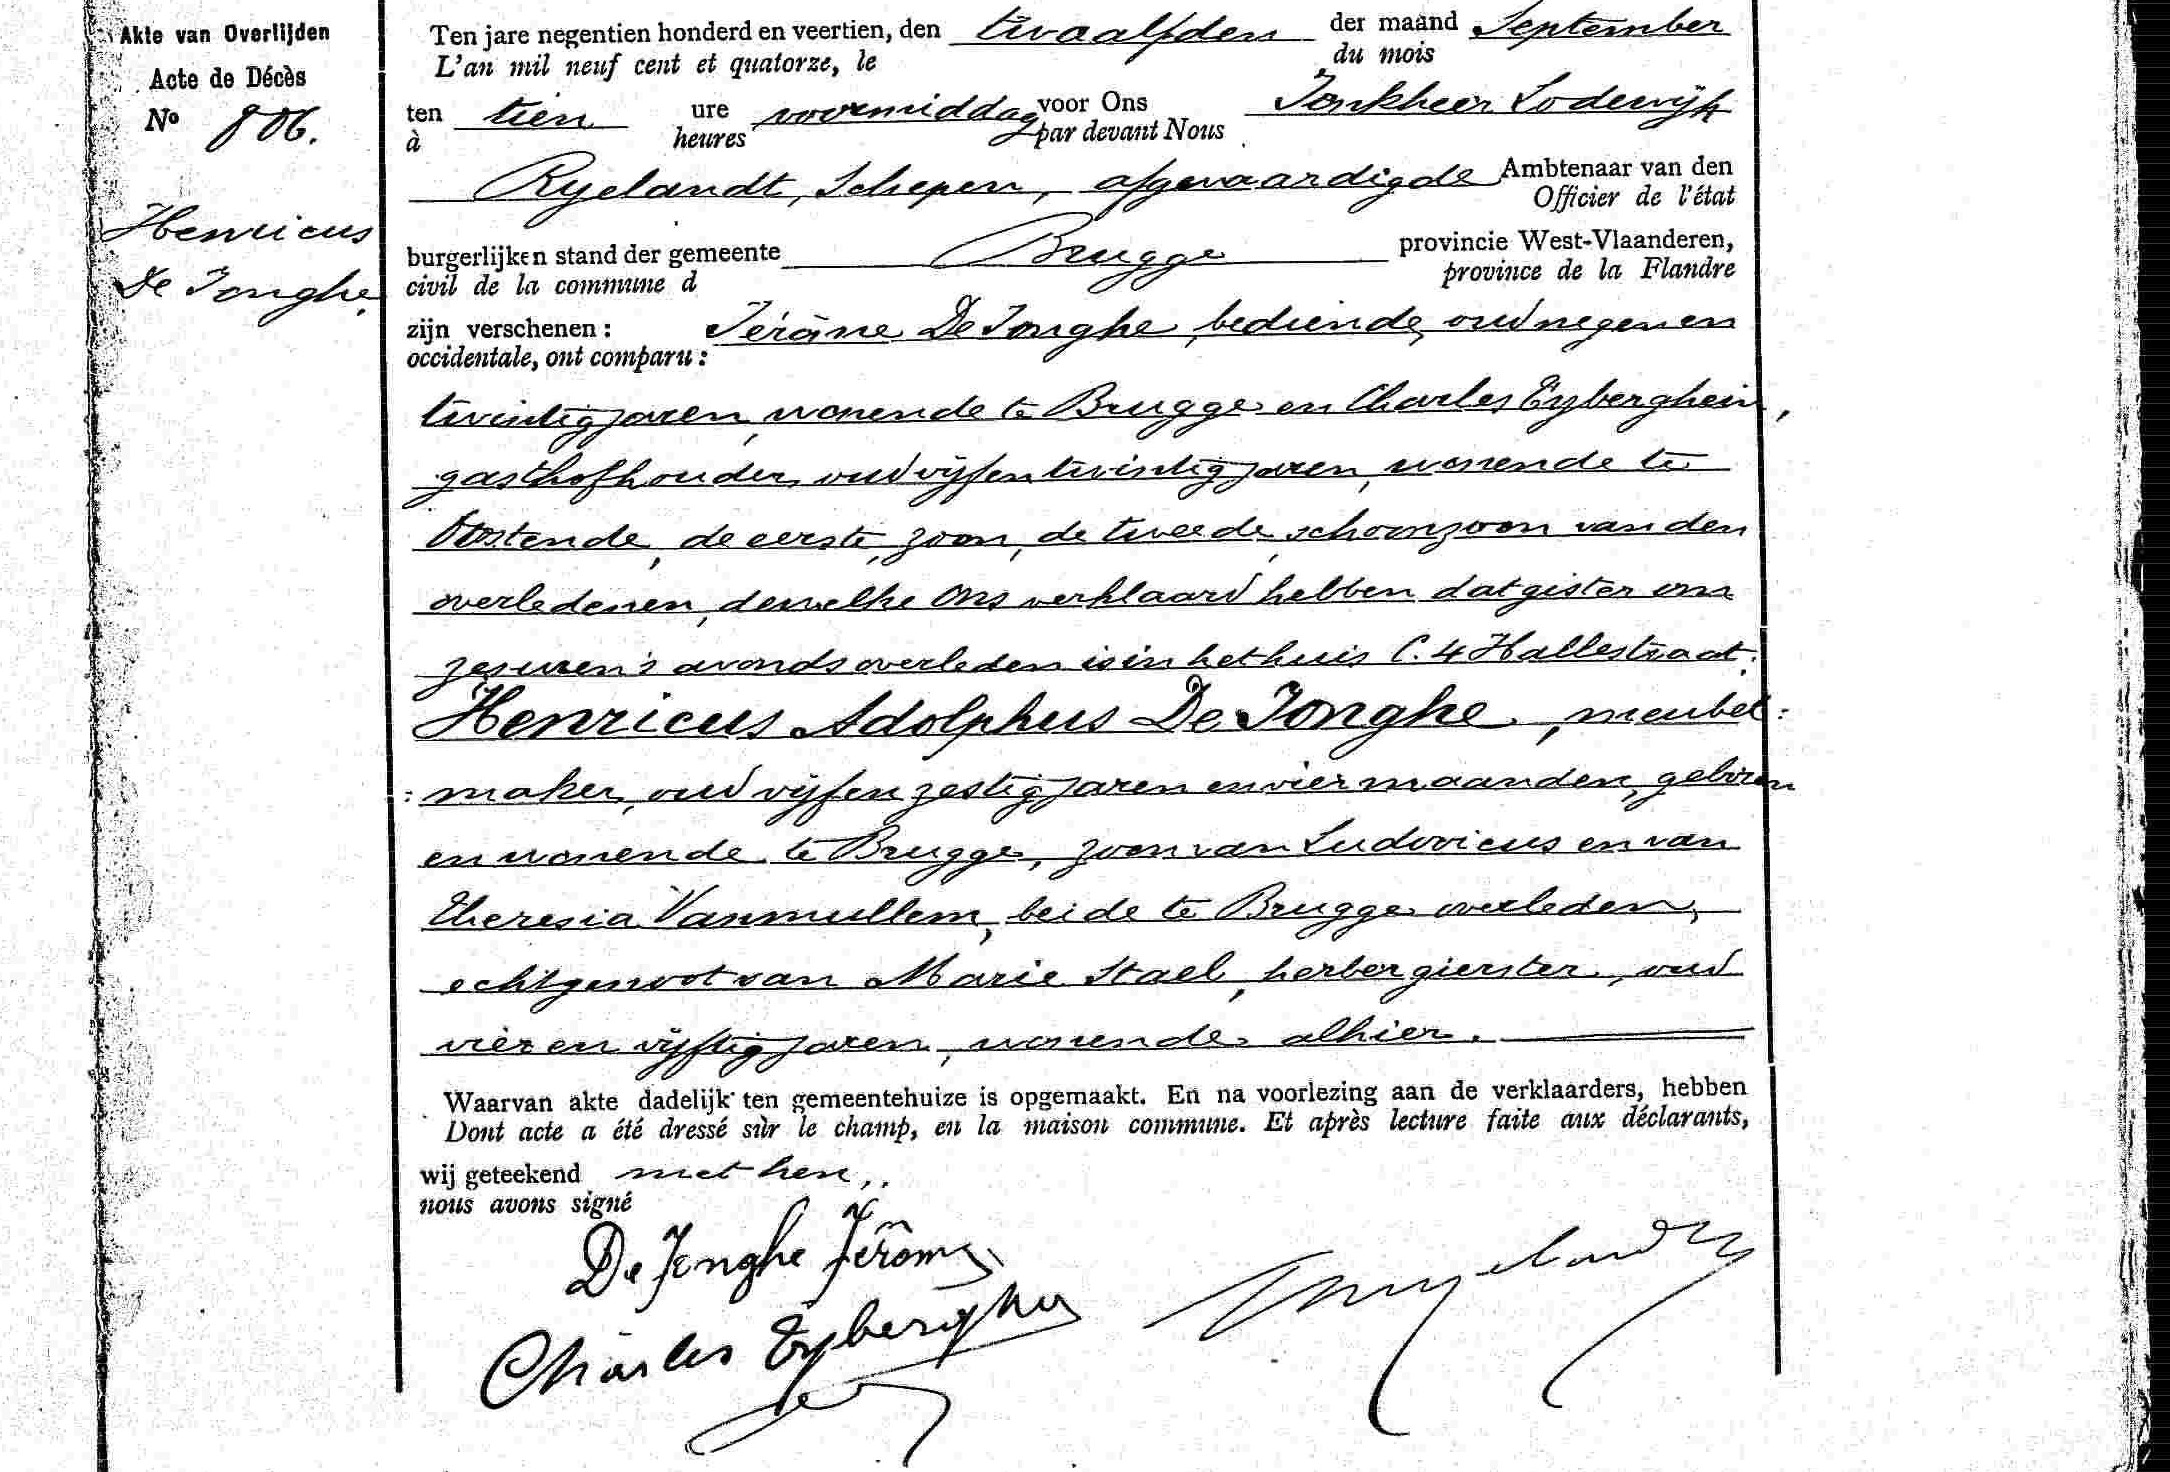 Akte van Overlijden
Acte de Décès
Nº 806.
Henricus
De Jonghe.
Ten jare negentien honderd en veertien, den twaalfden der maand September
L'an mil neuf cent et quatorze, le du mois
ten tien ure voormiddag voor Ons Jonkheer Lodewijk
à heures par devant Nous
Ryelandt, Schepen, afgevaardigde Ambtenaar van den
Officier de l'état
burgerlijken stand der gemeente Brugge provincie West-Vlaanderen,
civil de la commune d province de la Flandre
zijn verschenen : Jérôme De Jonghe, bediende, oud negen en
occidentale, ont comparu :
twintig jaren, wonende te Brugge en Charles Eyberghein,
gasthofhouder, oud vijf en twintig jaren, wonende te
Oostende, de eerste, zoon, de tweede, schoonzoon van den
overledenen, dewelke Ons verklaard hebben dat gister om
zes uren 's avonds overleden is in het huis C. 4 Hallestraat:
Henricus Adolphus De Jonghe, meubel:
:maker, oud vijf en zestig jaren en vier maanden, geboren
en wonende te Brugge, zoon van Ludovicus en van
Theresia Vanmullem, beide te Brugge overleden,
echtgenoot van Marie Stael, herbergierster, oud
vier en vijftig jaren, wonende alhier.
Waarvan akte dadelijk ten gemeentehuize is opgemaakt. En na voorlezing aan de verklaarders, hebben
Dont acte a été dressé sur le champ, en la maison commune. Et après lecture faite aux déclarants,
wij geteekend met hen,.
nous avons signé
De Jonghe Jérôme
Charles